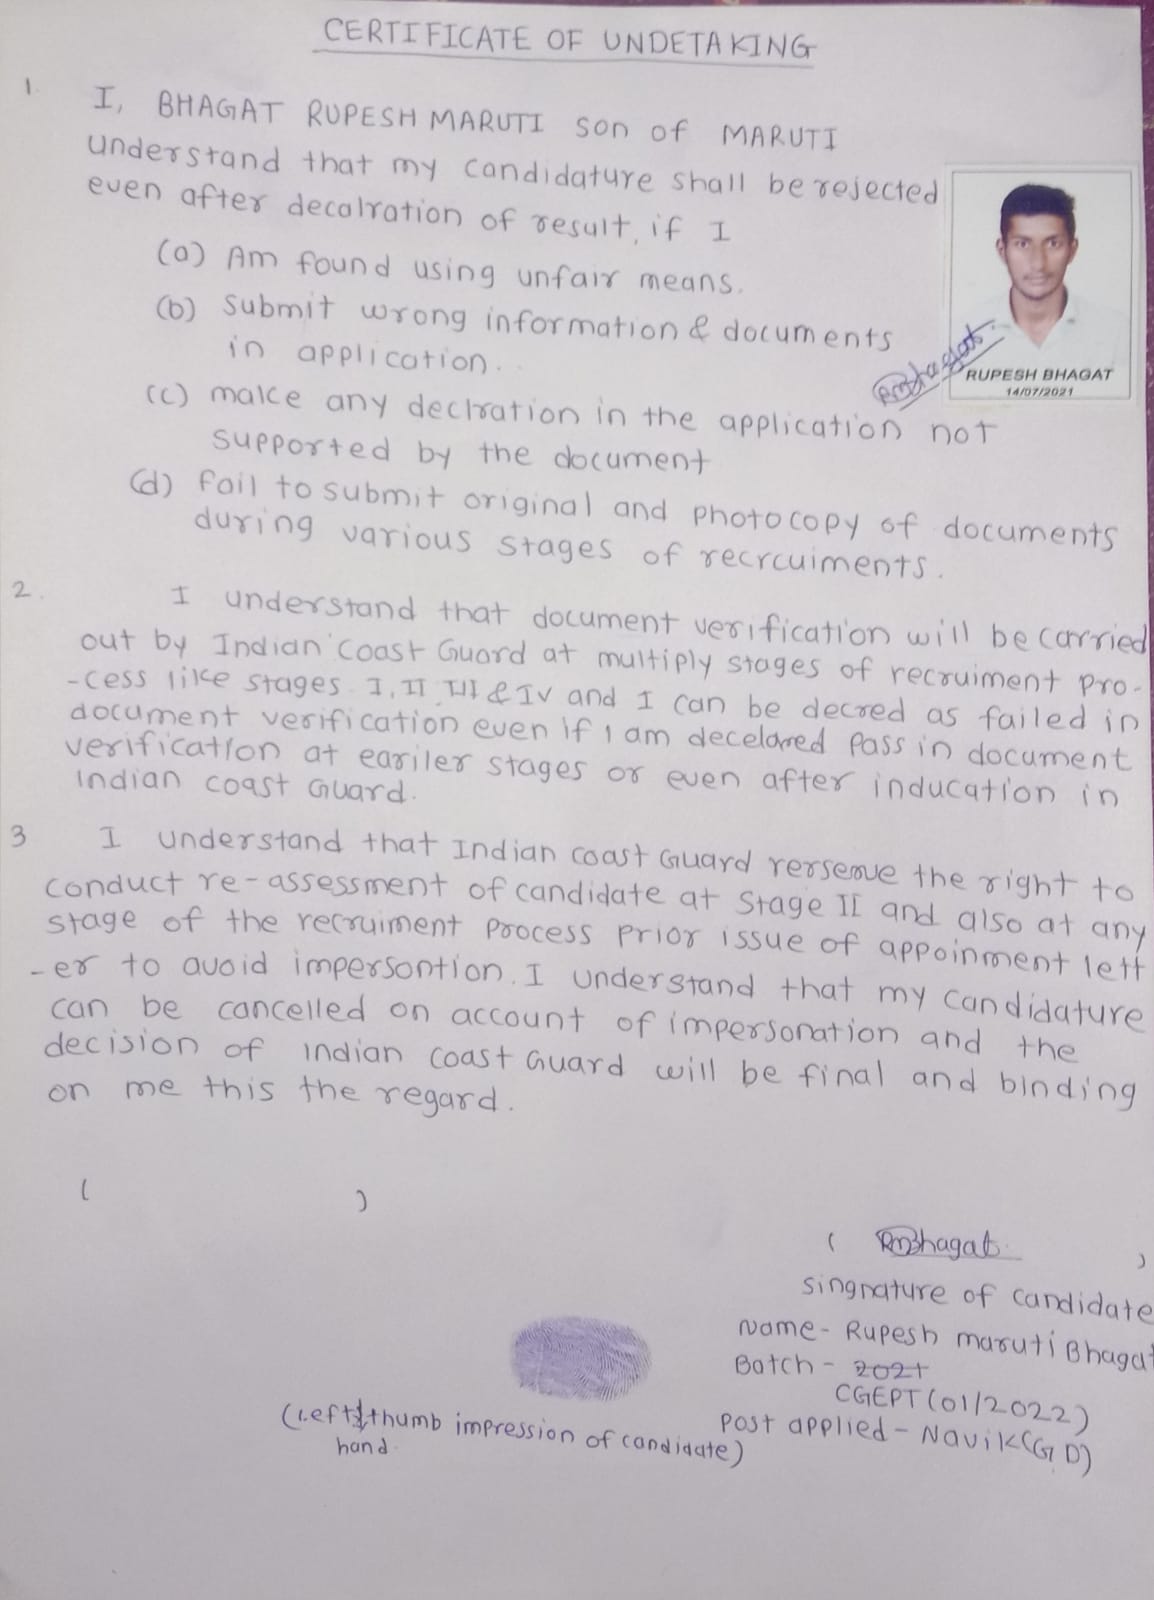 CERTIFICATE OF UNDETAKING
1. I, BHAGAT RUPESH MARUTI son of MARUTI
understand that my candidature shall be rejected
even after decalration of result, if I
(a) Am found using unfair means.
(b) Submit wrong information & documents
in application.
(c) make any declration in the application not
supported by the document
(d) fail to submit original and photocopy of documents
during various stages of recrcuiments.
RMBhagat
RUPESH BHAGAT
14/07/2021
2. I understand that document verification will be carried
out by Indian Coast Guard at multiply stages of recruiment pro-
-cess like stages I, II, III & IV and I can be decred as failed in
document verification even if I am decelared pass in document
verification at eariler stages or even after inducation in
Indian coast Guard.
3 I understand that Indian coast Guard rerserve the right to
conduct re-assessment of candidate at Stage II and also at any
stage of the recruiment process prior issue of appoinment lett
-er to avoid impersontion. I understand that my candidature
can be cancelled on account of impersonation and the
decision of Indian coast Guard will be final and binding
on me this the regard.
( )
( RMBhagat )
singnature of candidate
Name - Rupesh maruti Bhagat
Batch - 2021
CGEPT (01/2022)
Post applied - Navik (GD)
(Left thumb impression of candidate)
hand